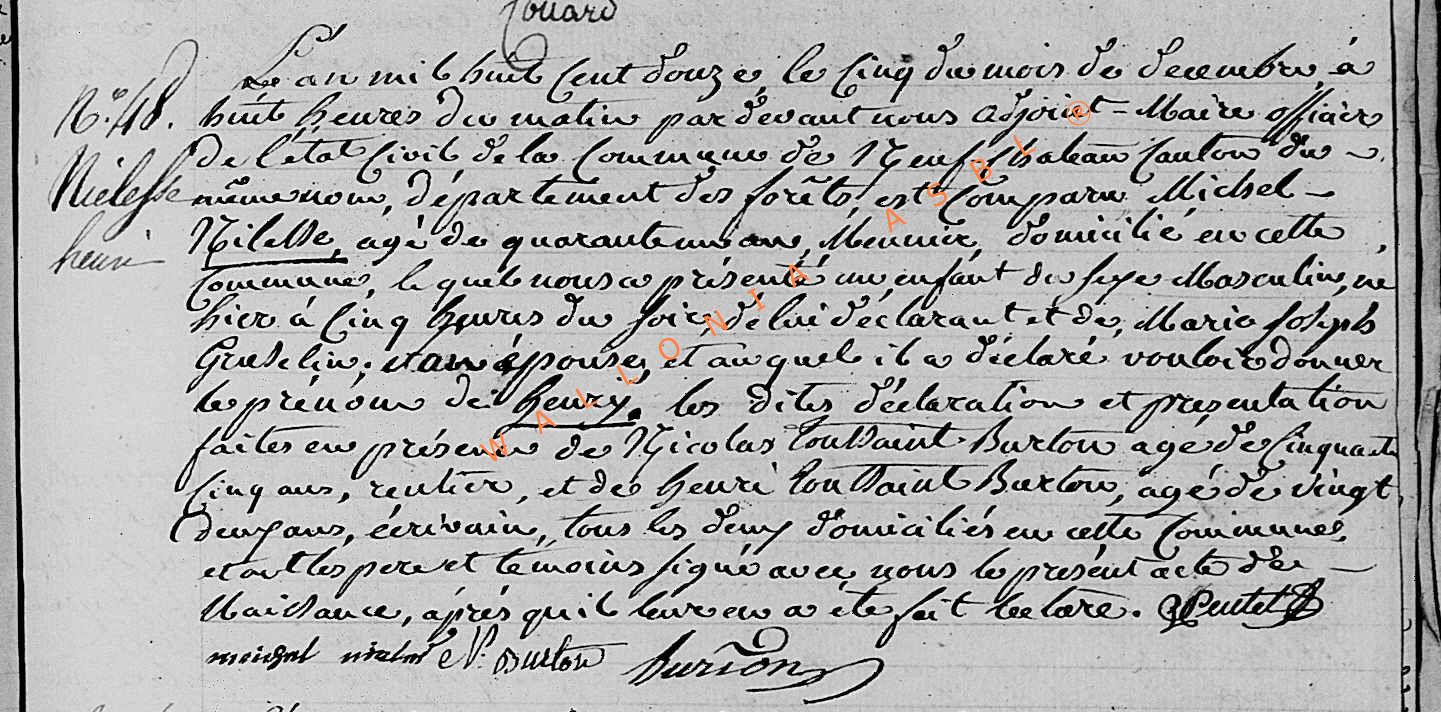 Edouard
L'an mil huit Cent douze, le Cinq du mois de decembre, à
N.° 48.
huit heures du matin par devant nous adjoint-Maire officier
de l'état Civil de la Commune de Neufchateau Canton du
Nielesse
même nom, département des forêts, est Comparu Michel
Nilesse, agé de quarante un ans, Meunier, domicilié en cette
henri
Commune, lequel nous a présenté un enfant du sexe Masculin, né
hier à Cinq heures du soir, de lui déclarant et de, Marie Joseph
épouse, et auquel il a déclaré vouloir donner
le prénom de henry. les dites déclaration et presentation
faites en présence de Nicolas Toussaint Burton agé de Cinquante
Cinq ans, rentier, et de henri Toussaint Burton, agé de vingt
deux ans, écrivain, tous les deux domiciliés en cette Commune,
et ont les pere et temoins signé avec nous le présent acte de
Naissance, aprés qu'il leur en a été fait lecture.
N. Burton Burton
WALLONIA ASBL @